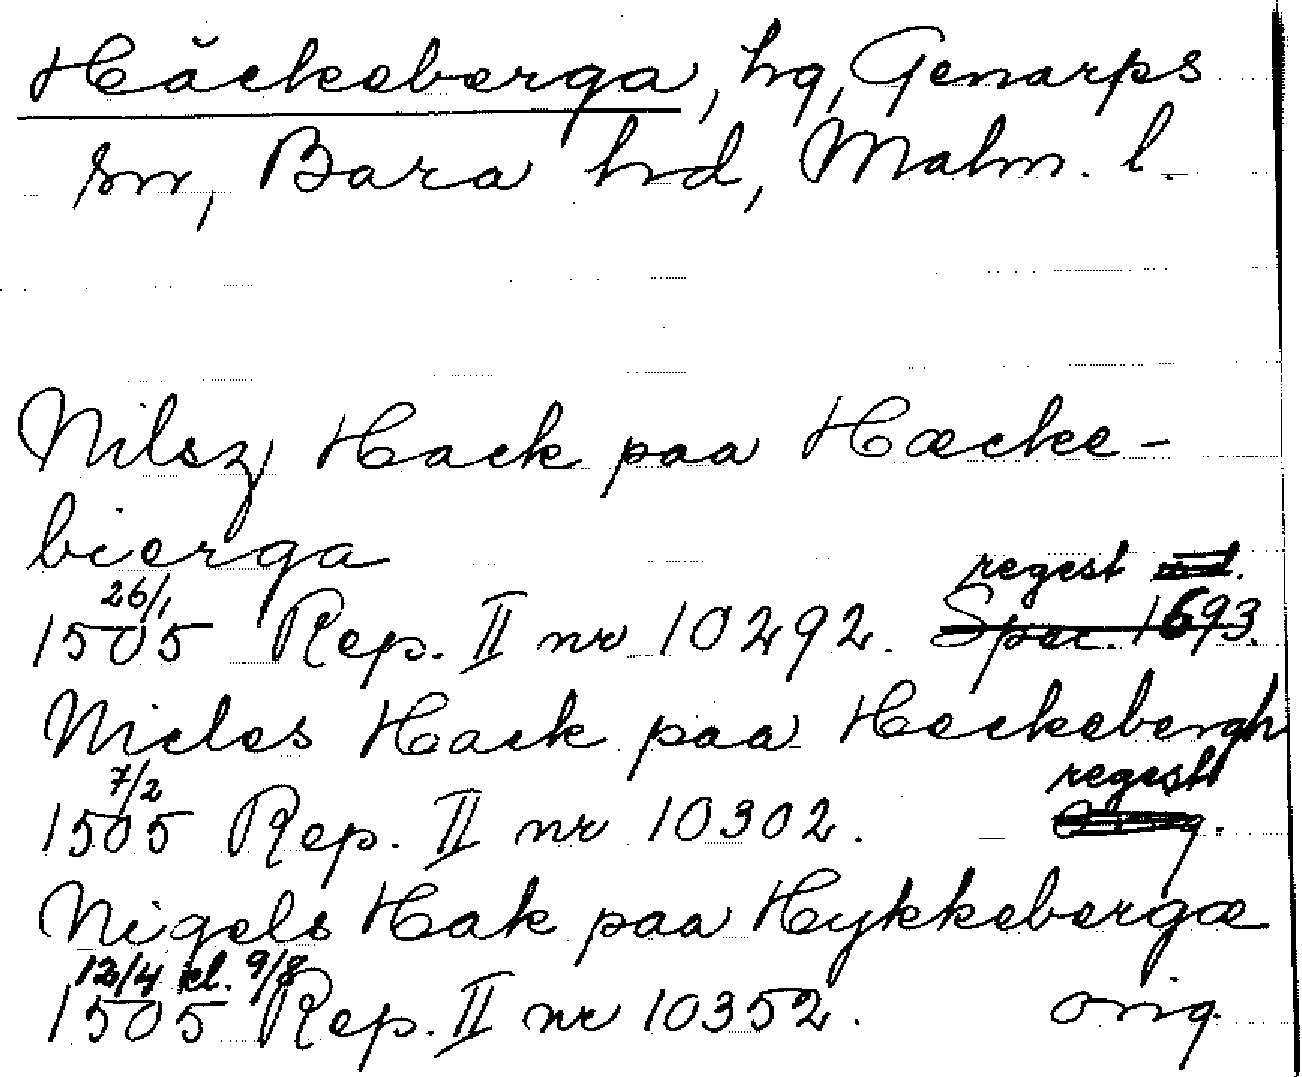 Häckeberga, hg, Genarps
sn, Bara hd, Malm. l.
Nilsz Hack paa Hæcke-
bierga
regest
26/1
1505 Rep. II nr 10292. Spec. 1693.
Nieles Hack paa Heckebergh
7/2 regest
1505 Rep. II nr 10302. Orig.
Nigels Hak paa Hykkebergæ
12/4 el. 9/8
1505 Rep. II nr 10352. orig